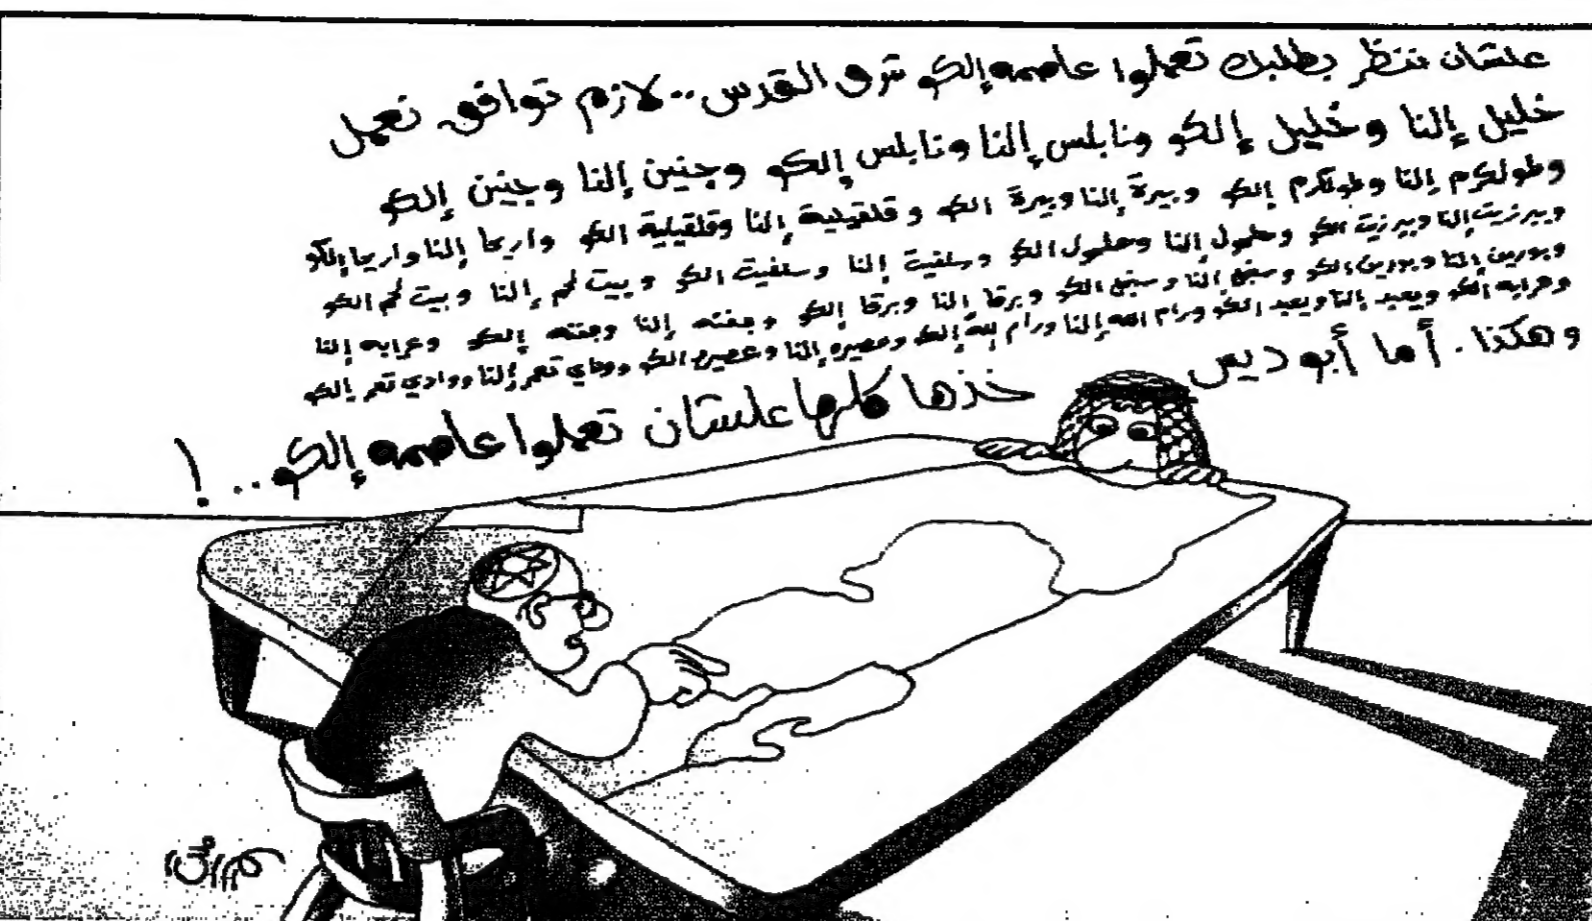 علشان ننظر بطلبك تعملوا عاصمه إلكو شرق القدس.. لازم توافق نعمل
خليل إلنا وخليل إلكو ونابلس إلنا ونابلس إلكو وجنين إلنا وجنين إلكو
وطولكرم إلنا وطولكرم إلكو وبيرة إلنا وبيرة الكو وقلقيلية إلنا وقلقيلية الكو واريحا إلنا واريحا إلكو
وبيرزيت إلنا وبيرزيت الكو وحلحول إلنا وحلحول الكو وسلفيت إلنا وسلفيت الكو وبيت لحم إلنا وبيت لحم الكو
وبورين إلنا وبورين الكو وسنجل إلنا وسنجل الكو وبرقا إلنا وبرقا إلكو وجفنه إلنا وجفنه إلكو وعرابه إلنا
وعرابه الكو ويعبد إلنا ويعبد الكو ورام الله إلنا ورام لله إلكو وعصيره إلنا وعصيره الكو إلنا ووادي إلكو
وهكذا. أما أبو ديس
خذها كلها علشان تعملوا عاصمه إلكو..!